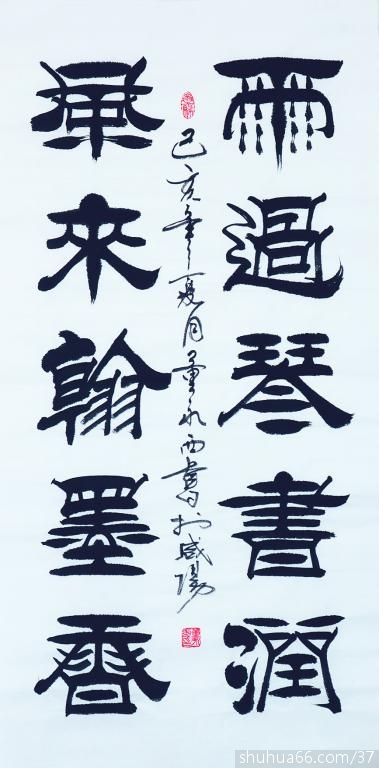 雨過琴書潤
風來翰墨香
己亥年夏月永西書於咸陽
shuhua66.com/37